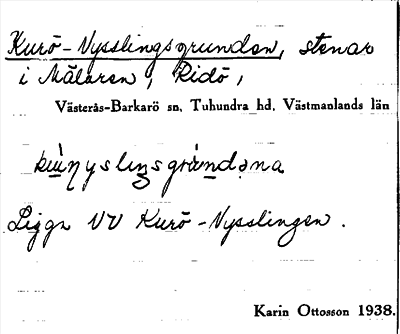 Kurö-Nysslingsgrunden, stenar
i Mälaren, Ridö,
Västerås-Barkarö sn, Tuhundra hd, Västmanlands län
Ligga VV Kurö-Nysslingen.
Karin Ottosson 1938.